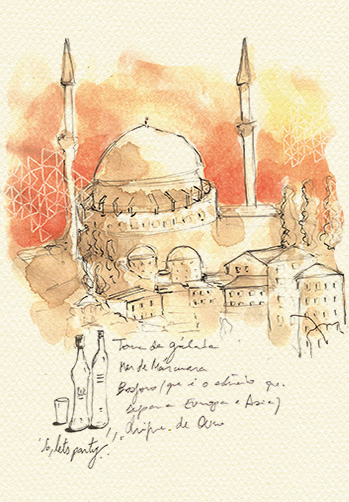 Torre de gálata
Mar de Mármara
Bósforo (que é o estreito que
separa Europa e Asia)
de Ouro
lets party!